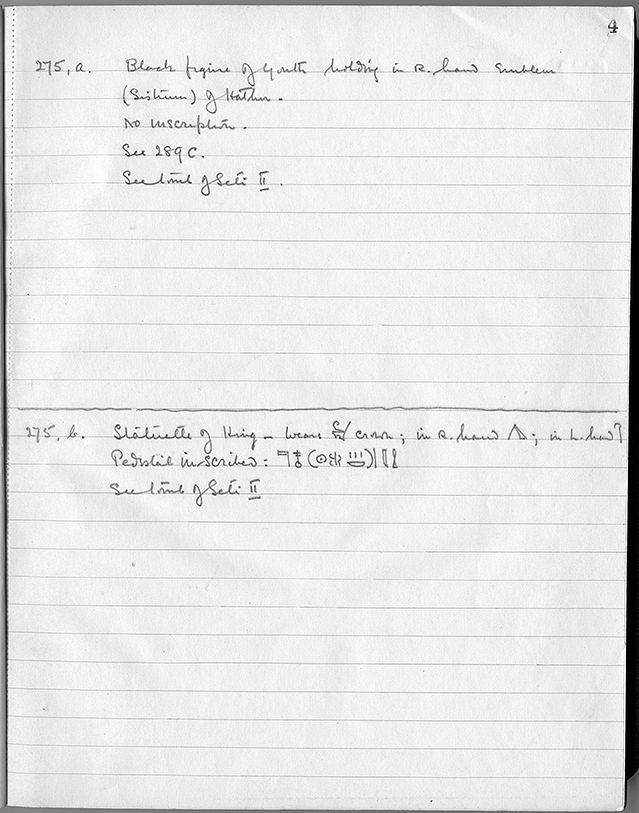 4
275, a. Black figure of youth holding in R. hand Emblem
(Sistrum) of Hathor.
No inscription.
See 289 c.
See tomb of Seti II.
275, b. Statuette of King – wears crown; in R. hand; in L. hand
Pedstil inscribed: 𓊹𓄤(𓇳𓆣𓏥𓎟)
See tomb of Seti II